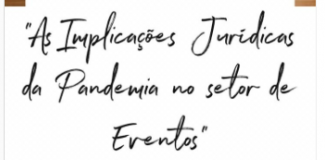 "As Implicações Jurídicas
da Pandemia no setor de
Eventos"